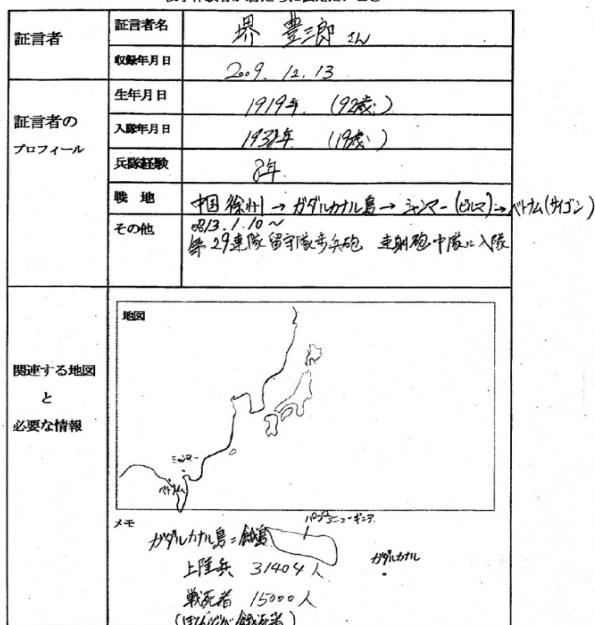 証言者
証言者名
堺 豊三郎 さん
収録年月日
2009. 12. 13
証言者の
プロフィール
生年月日
1919年 (92歳)
入隊年月日
1938年 (19歳)
兵隊経験
8年
戦 地
中国 徐州 → ガダルカナル島 → ミャンマー (ビルマ) → ベトナム (サイゴン)
その他
S13.1.10〜
第29連隊 留守隊歩兵砲 速射砲中隊に入隊
関連する地図
と
必要な情報
地図
ミャンマー
ベトナム
メモ
パプアニューギニア
ガダルカナル島=餓島
ガダルカナル
上陸兵 31404人
戦死者 15000人
(ほとんどが餓死者)